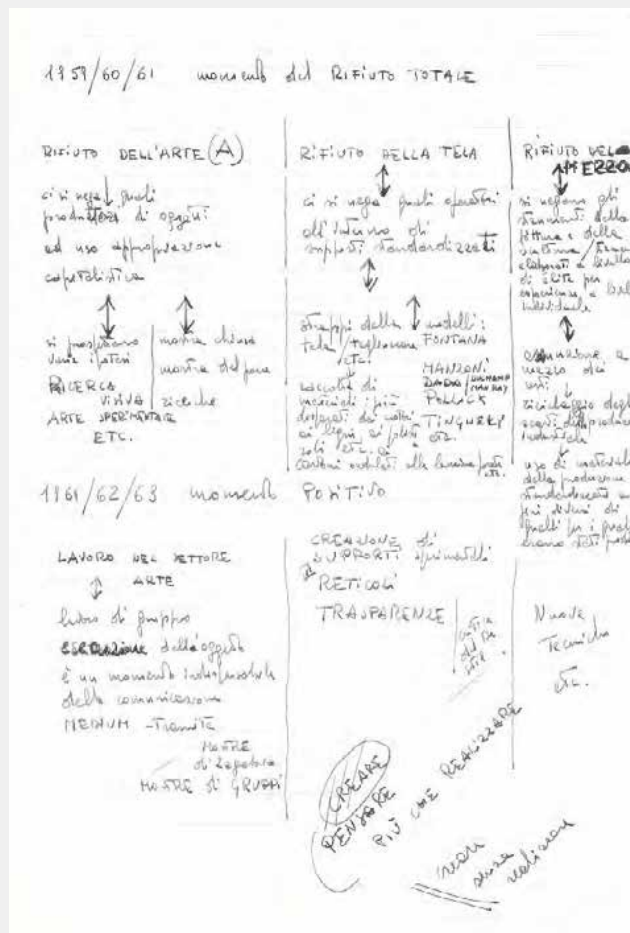 1959/60/61 momento del RIFIUTO TOTALE
RIFIUTO DELL'ARTE (A)
ci si nega quali
produttori di oggetti
ad uso appropriazione
capitalistica
si prospettano
varie ipotesi
RICERCA
VISIVA
ARTE SPERIMENTALE
ETC.
mostra chiusa
mostra del pane
ricerche
RIFIUTO DELLA TELA
ci si nega quali operatori
all'interno di
supporti standardizzati
strappi della
tela / tagli
etc.
raccolta di
materiali i più
disparati dai
ai legni, ai
etc. ai
cartoni ondulati alle lamine
etc.
modelli:
FONTANA
MANZONI
DADA / DUCHAMP
MAN RAY
POLLOCK
TINGUELY
etc.
RIFIUTO DEL
MEZZO
si negano gli
strumenti della
pittura e della
scultura
elaborati a livello
di élite per
esperienze a
individuale
assunzione a
mezzo dei
riciclaggio degli
scarti della produzione
industriale
uso di materiali
della produzione
standardizzati
fini diversi di
quelli per i quali
erano stati
1961/62/63 momento POSITIVO
LAVORO NEL SETTORE
ARTE
lavoro di gruppo
dell'oggetto
è un momento indispensabile
della comunicazione
MEDIUM - Tramite
MOSTRE
di
MOSTRE di GRUPPI
CREAZIONE di
SUPPORTI sperimentali
RETICOLI
TRASPARENZE
Nuove
Tecniche
etc.
CREARE
PENSARE
PIÙ CHE REALIZZARE
creare
senza
realizzare